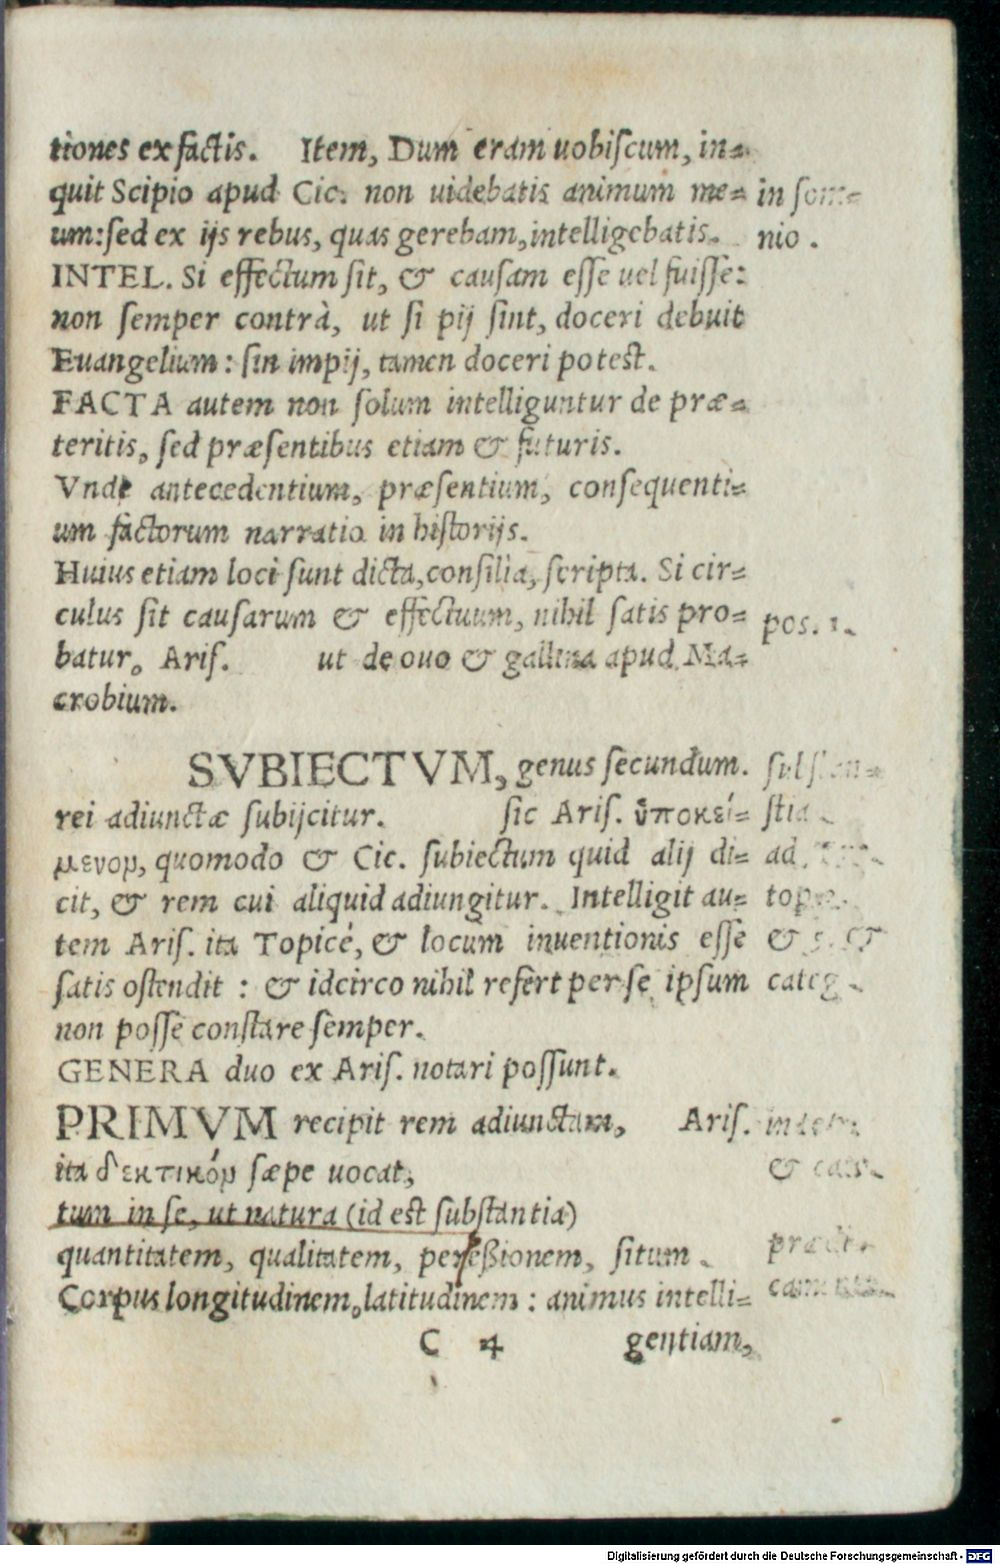 tiones ex factis. Item, Dum eram uobiscum, in-
quit Scipio apud Cic. non uidebatis animum me-
in som-
um: sed ex ijs rebus, quas gerebam, intelligebatis.
nio.
INTEL. Si effectum sit, & causam esse uel fuisse:
non semper contrà, ut si pij sint, doceri debuit
Euangelium: sin impij, tamen doceri potest.
FACTA autem non solum intelliguntur de præ-
teritis, sed præsentibus etiam & futuris.
Vnde antecedentium, præsentium, consequenti-
um factorum narratio in historijs.
Huius etiam loci sunt dicta, consilia, scripta. Si cir-
culus sit causarum & effectuum, nihil satis pro-
pos. 1.
batur. Aris. ut de ouo & gallina apud Ma-
crobium.
SVBIECTVM, genus secundum.
rei adiunctæ subijcitur. sic Aris. ὑποκεί-
stia
μενον, quomodo & Cic. subiectum quid alij di-
ad
cit, & rem cui aliquid adiungitur. Intelligit au-
tem Aris. ita Topicé, & locum inuentionis esse
satis ostendit: & idcirco nihil refert per se ipsum
categ.
non posse constare semper.
GENERA duo ex Aris. notari possunt.
PRIMVM recipit rem adiunctam, Aris.
ita δεκτικὸν sæpe uocat,
&
tum in se, ut natura (id est substantia)
quantitatem, qualitatem, perpeßionem, situm.
Corpus longitudinem, latitudinem: animus intelli-
C 4
gentiam,
Digitalisierung gefördert durch die Deutsche Forschungsgemeinschaft - DFG